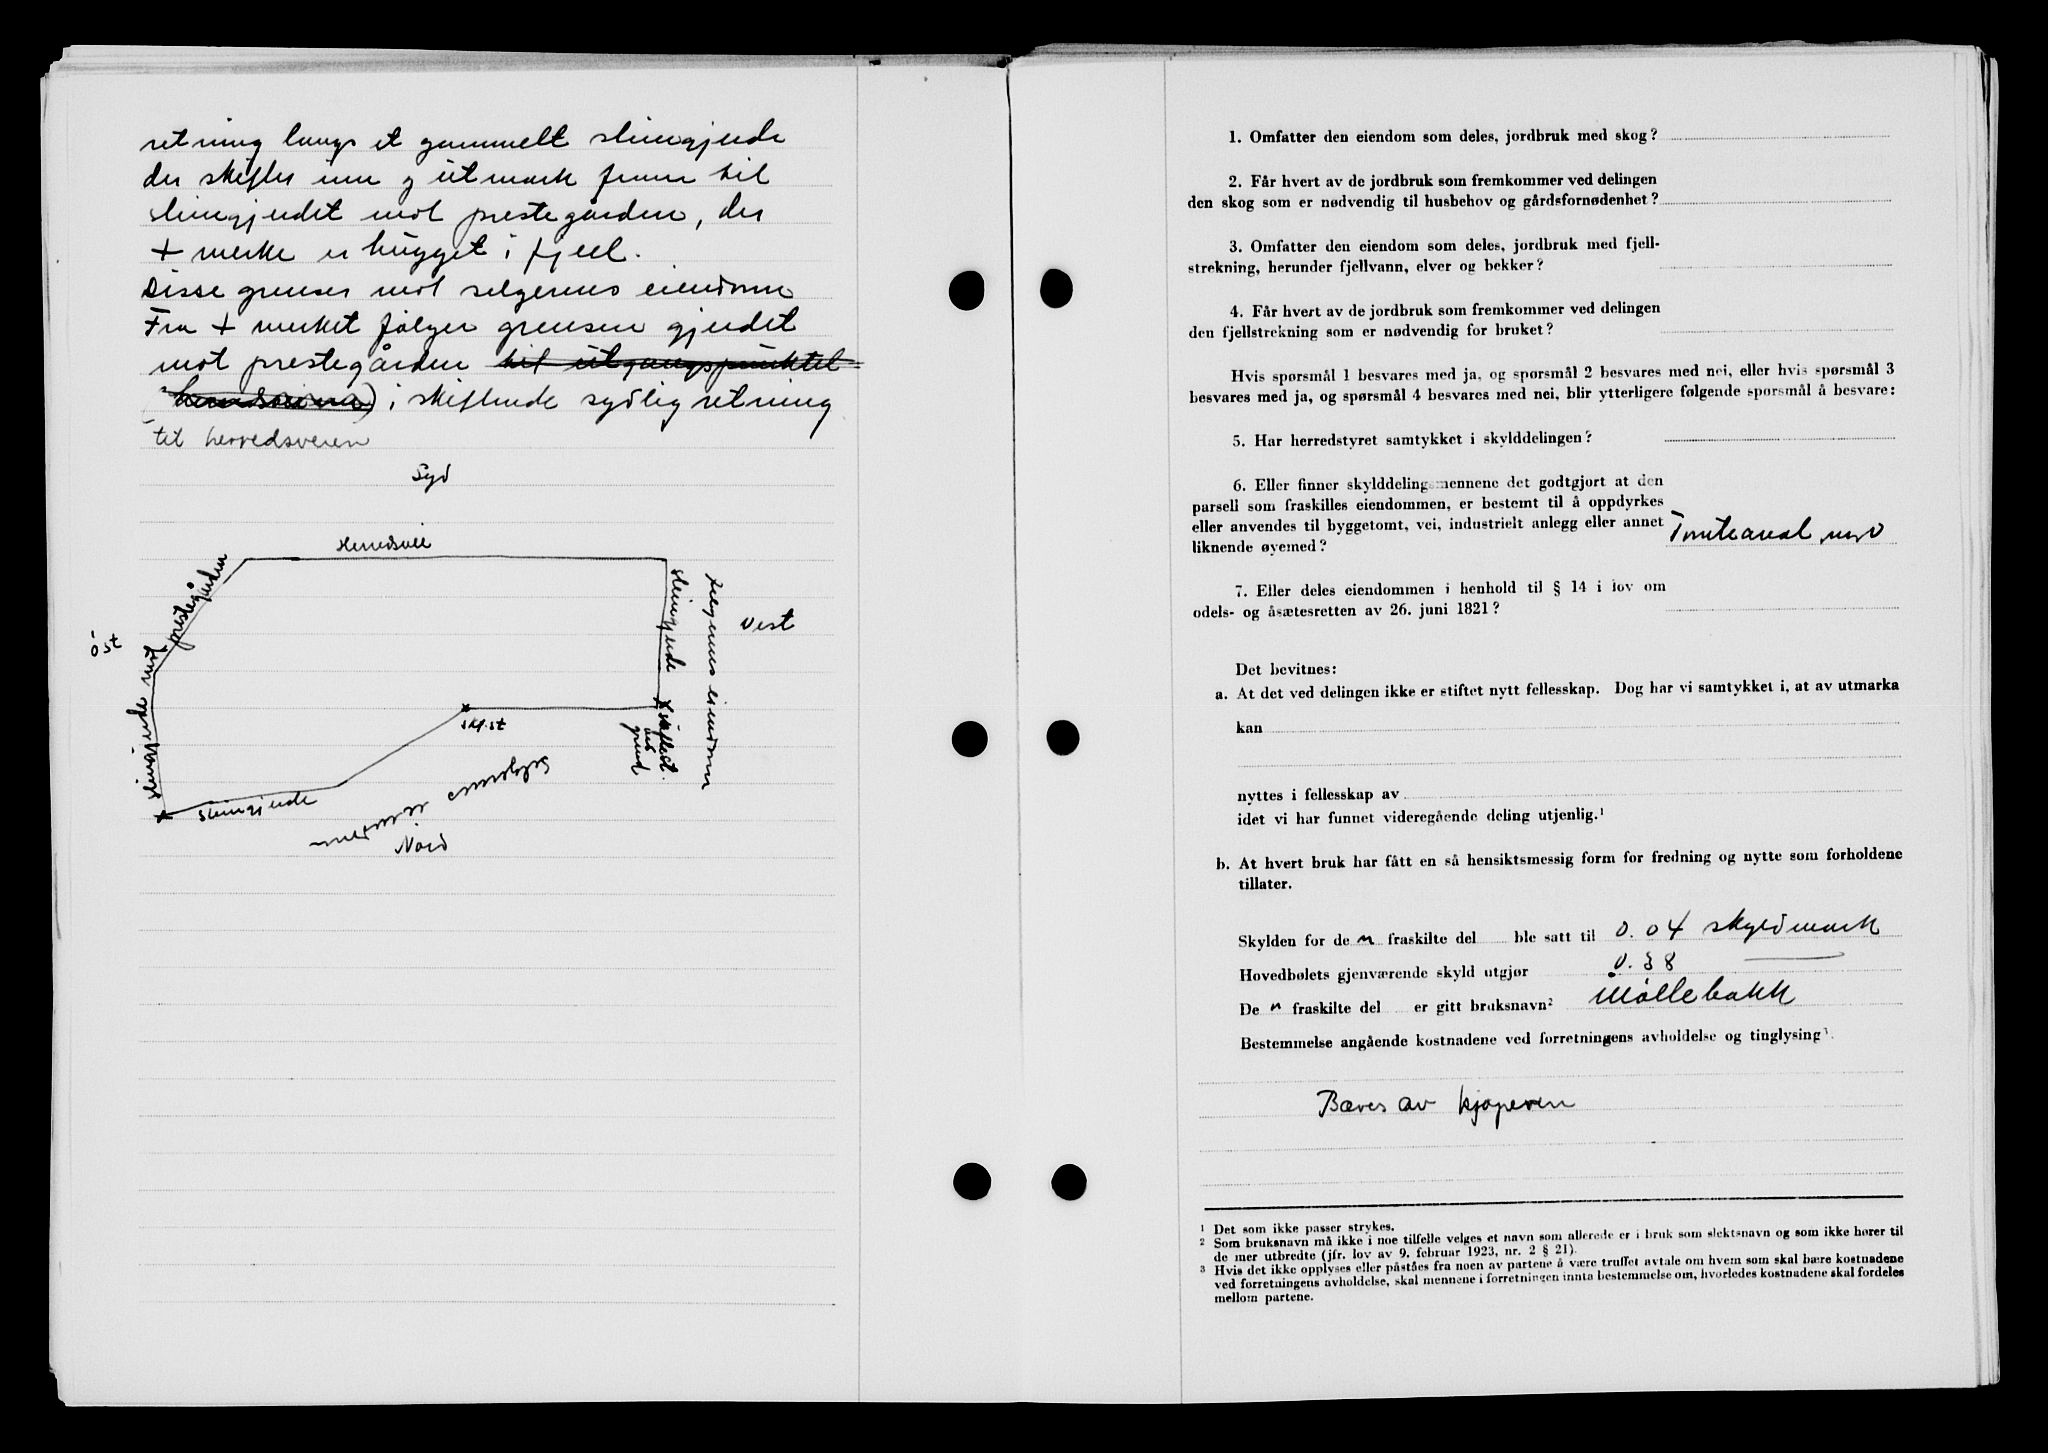 retning langs et gammelt steingjerde
der skifter inn og utmark fram til
steingjerdet mot prestegården, der
+ merke er hugget i fjell.
Disse grenser mot selgerens eiendom
Fra + merket følger grensen gjerdet
mot prestegården til utgangspunktet
i skiftende sydlig retning
til herredsveien
Syd
Herredsvei
steingjerde mot prestegården
steingjerde
selgerens eiendom
Vest
Øst
skf.st
skiftest.
steingjerde
selgerens eiendom
Nord
1. Omfatter den eiendom som deles, jordbruk med skog?
2. Får hvert av de jordbruk som fremkommer ved delingen
den skog som er nødvendig til husbehov og gårdsfornødenhet?
3. Omfatter den eiendom som deles, jordbruk med fjell-
strekning, herunder fjellvann, elver og bekker?
4. Får hvert av de jordbruk som fremkommer ved delingen
den fjellstrekning som er nødvendig for bruket?
Hvis spørsmål 1 besvares med ja, og spørsmål 2 besvares med nei, eller hvis spørsmål 3
besvares med ja, og spørsmål 4 besvares med nei, blir ytterligere følgende spørsmål å besvare:
5. Har herredstyret samtykket i skylddelingen?
6. Eller finner skylddelingsmennene det godtgjort at den
parsell som fraskilles eiendommen, er bestemt til å oppdyrkes
eller anvendes til byggetomt, vei, industrielt anlegg eller annet
liknende øyemed? Tomteareal
7. Eller deles eiendommen i henhold til § 14 i lov om
odels- og åsætesretten av 26. juni 1821?
Det bevitnes:
a. At det ved delingen ikke er stiftet nytt fellesskap. Dog har vi samtykket i, at av utmarka
kan
nyttes i fellesskap av
idet vi har funnet videregående deling utjenlig.¹
b. At hvert bruk har fått en så hensiktsmessig form for fredning og nytte som forholdene
tillater.
Skylden for de n fraskilte del ble satt til 0.04 skyldmark
Hovedbølets gjenværende skyld utgjør 0.38
De n fraskilte del er gitt bruksnavn² Møllebakk
Bestemmelse angående kostnadene ved forretningens avholdelse og tinglysing³.
Bæres av kjøperen
¹ Det som ikke passer strykes.
² Som bruksnavn må ikke i noe tilfelle velges et navn som allerede er i bruk som slektsnavn og som ikke hører til
de mer utbredte (jfr. lov av 9. februar 1923, nr. 2 § 21).
³ Hvis det ikke opplyses eller påståes fra noen av partene å være truffet avtale om hvem som skal bære kostnadene
ved forretningens avholdelse, skal mennene i forretningen innta bestemmelse om, hvorledes kostnadene skal fordeles
mellom partene.